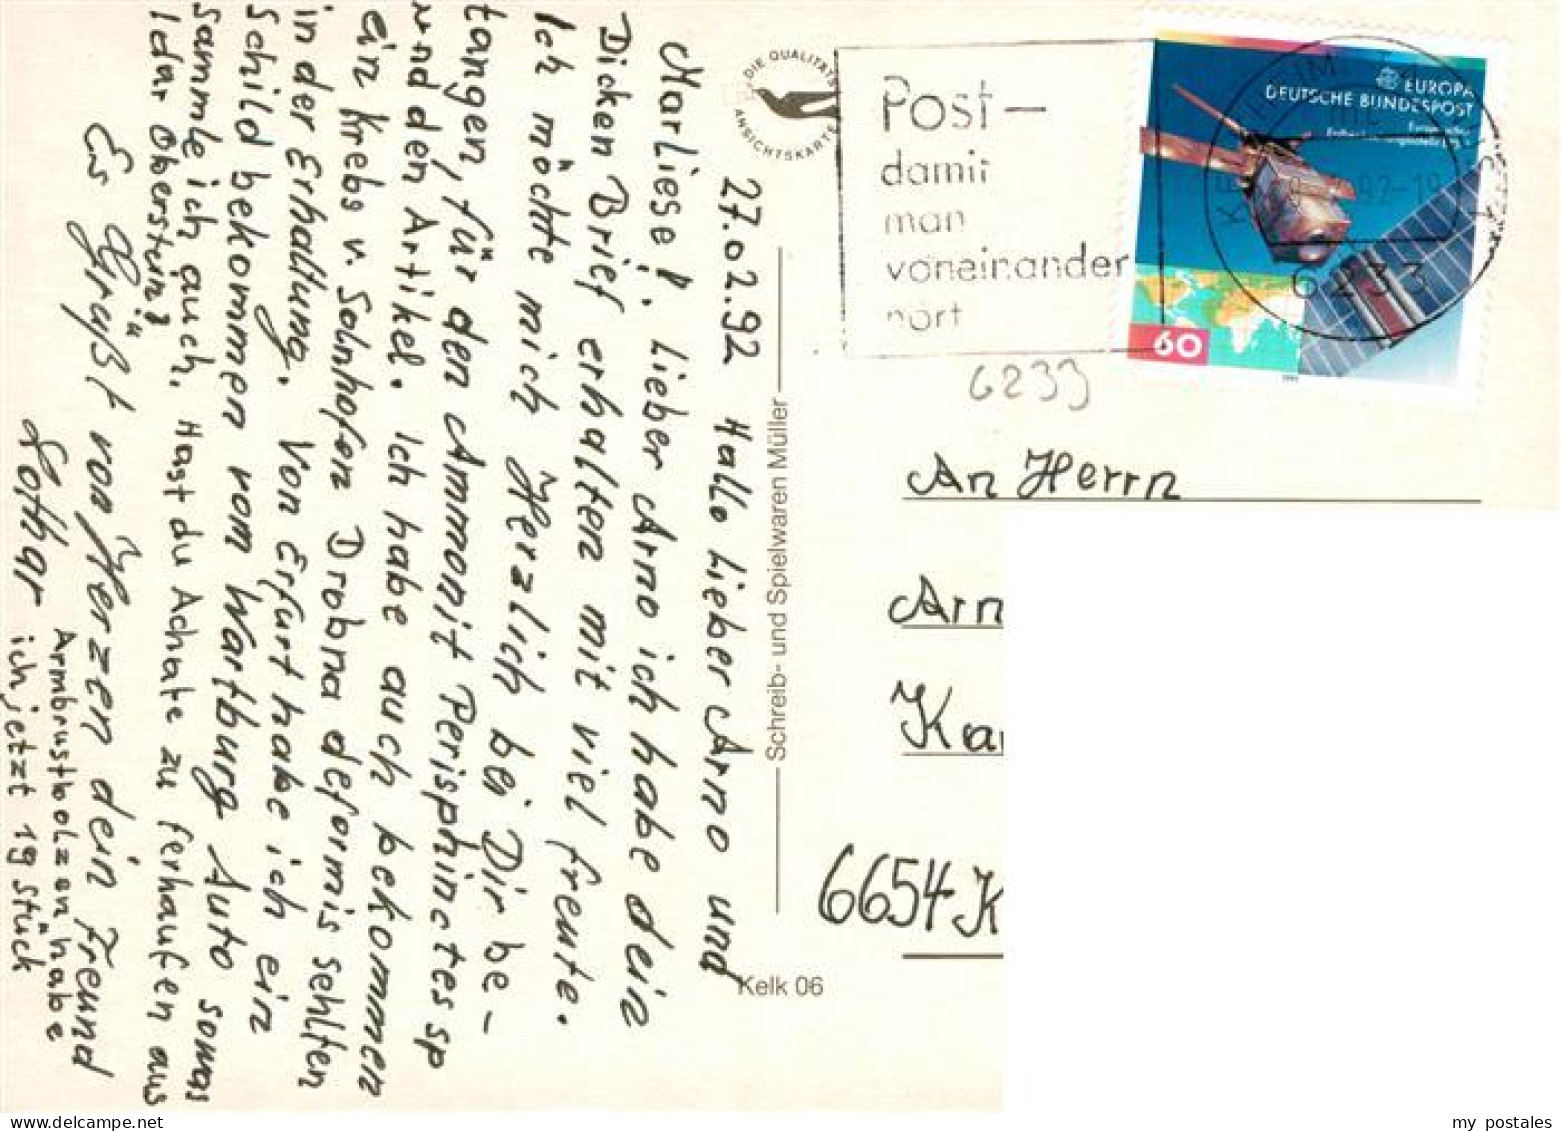 27.02.92 Hallo lieber Arno und
Marliese!. lieber Arno ich habe dein
Dicken Brief erhalten mit viel freute.
Ich möchte mich Herzlich bei Dir be-
tangen, für den Ammonit Perisphinctes sp
und den Artikel. Ich habe auch bekommen
ein Krebs v. Solnhofen Drobna deformis sehlten
in der Erhaltung. Von Erfurt habe ich ein
Schild bekommen vom Wartburg Auto sowas
sammle ich auch. Hast du Achate zu ferhaufen aus
Idar Oberstein?
Es Grüßt von Herzen dein Freund
Lothar
Armbrustbolzen habe
ich jetzt 19 stück
DIE QUALITÄTS
ANSICHTSKARTE
Schreib- und Spielwaren Müller
Kelk 06
Post-
damit
man
voneinander
hört
EUROPA
DEUTSCHE BUNDESPOST
60
6233
6233
An Herrn
Arn
Ka
6654 K
my postales